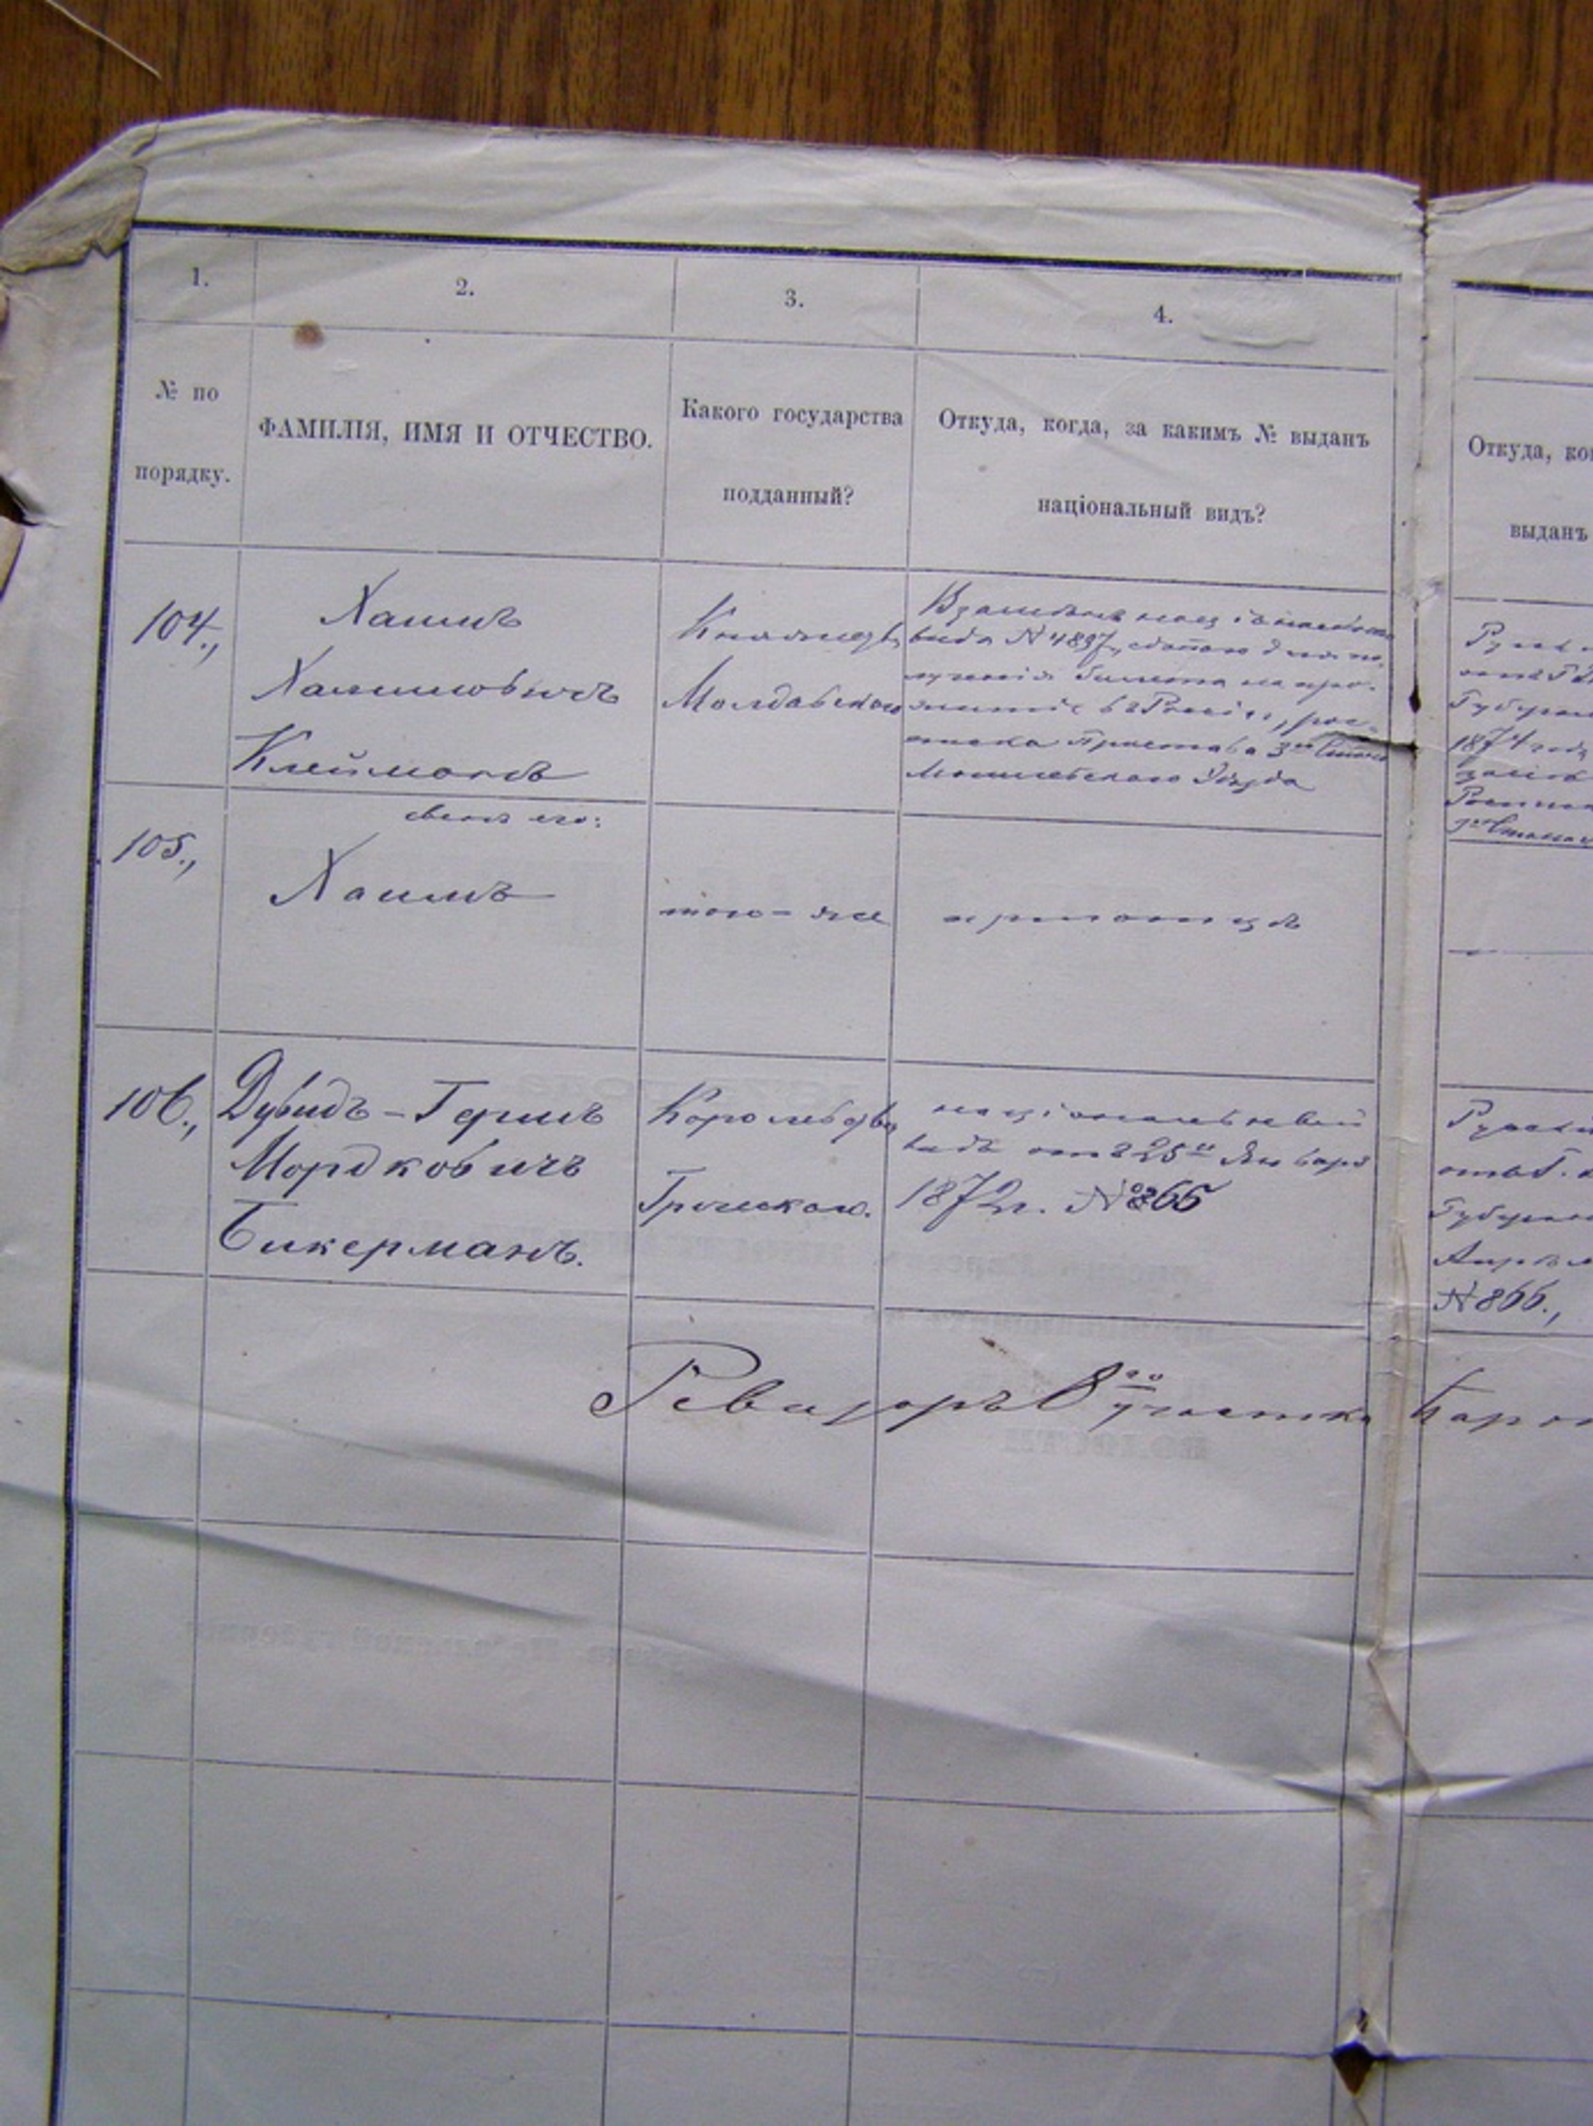 1.
2.
3.
4.
№ по
порядку.
ФАМИЛІЯ, ИМЯ И ОТЧЕСТВО.
Какого государства
подданный?
Откуда, когда, за какимъ № выданъ
національный видъ?
Откуда, ко
выданъ
104.,
Хаимъ
Хаимовичъ
Клейманъ
Княжества
Молдавскаго
Взамѣнъ національнаго
вида № 4897,
билета на про-
въ Россіи, рос-
писка Пристава 3го Стана
Могилевскаго Уѣзда
Губерна
1874 года
105.,
его:
Хаимъ
того-же
при отцѣ
106.,
Дувидъ-Гершъ
Мордковичъ
Бикерманъ.
Королевства
Греческаго.
національный
видъ отъ 25го Января
1872 г. № 866
Губерна
№ 866.,
Ревизоръ 8го участка